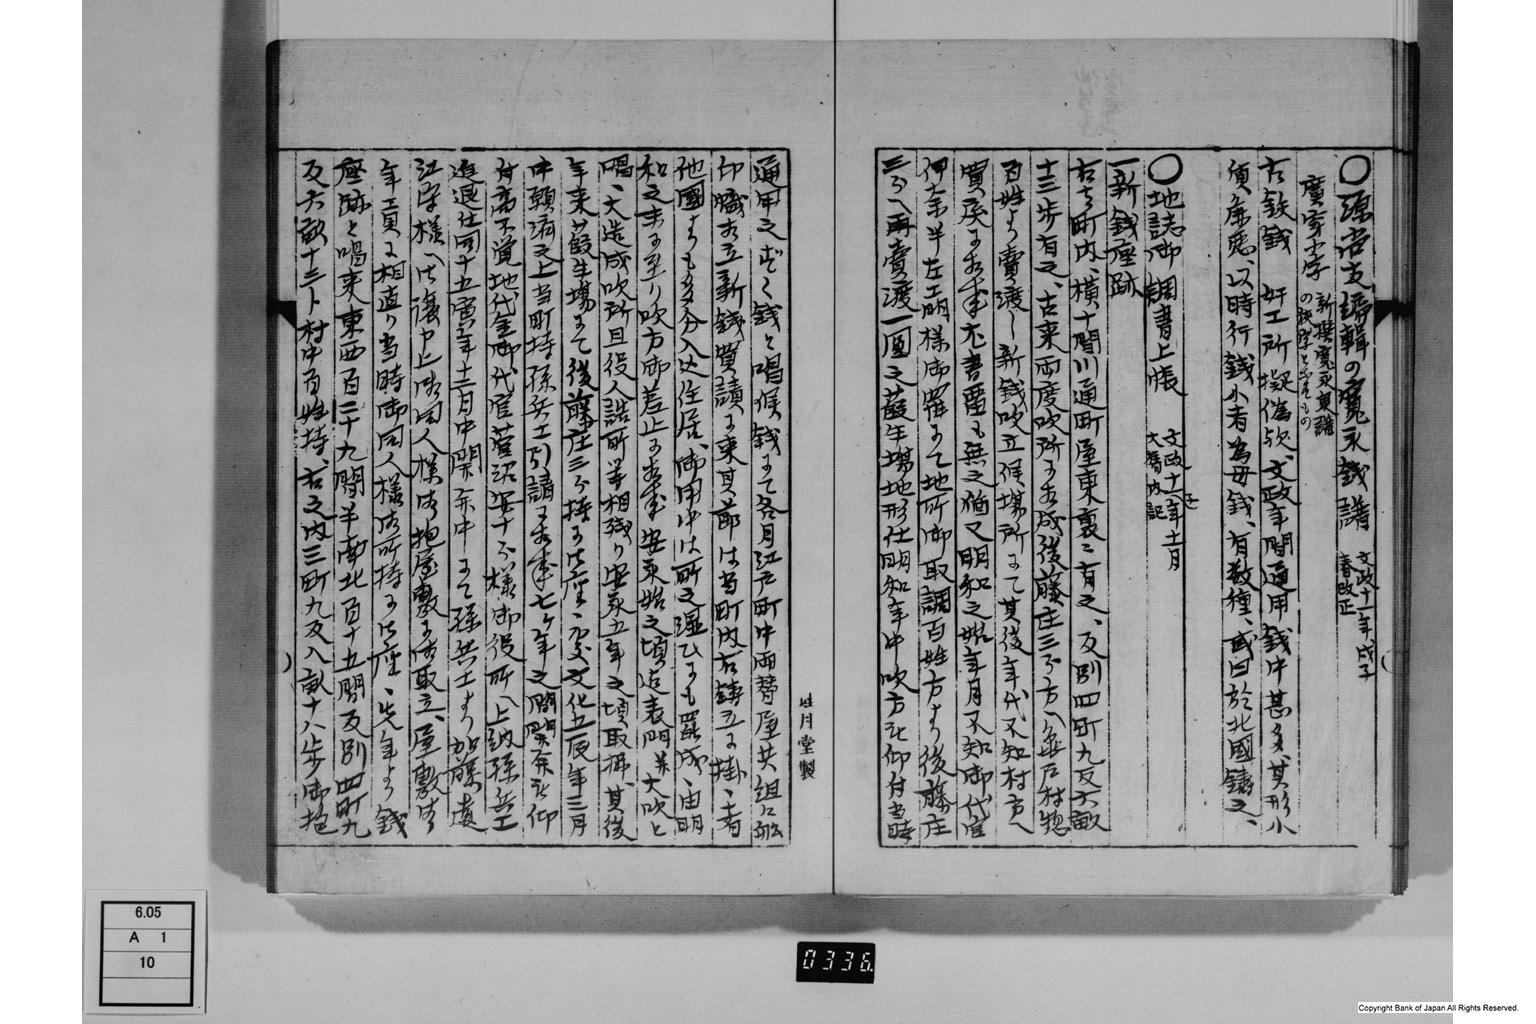 〇源常支譜輯の寛永銭譜 文政十一年戊子春改正
廣穿小字 新撰寛永泉譜の
右鉄銭 奸工所擬偽欤文政年間通用銭中甚多其形小
以時行銭小者為母銭、有数種、或曰於北國鑄之、
〇地誌御調書上帳 文政十一年子十二月
一新銭座跡
右者町内横、十間川通町屋東裏ニ有之、反別四町九反六畝
十三歩有之、古来両度吹所ニ相成後藤庄三郎方へ亀戸村惣
百姓より賣渡し新銭吹立候場所ニて其後年代不知村方へ
買戻ニ相成尤書留も無之猶又明和之始年月不知御代官
伊奈半左エ門様御掛ニて地所御取調百姓方より後藤庄
三郎へ再賣渡一圓之葭生場地形仕明和年中吹方被仰付当時
通用之銭と唱候銭ニて各月江戸町中両替屋共組
印職相立新銭買請ニ来其節は当町内右鋳立ニ掛、者
他國よりも多分入込住居、御用中は所之潤ひニも罷成、由明
和之末ニ至り吹方御差止ニ相成安永始之頃迄表門并大吹と
唱、大造成吹所且役人詰所等相残り安永五年之頃取拂、其後
年来葭生場ニて後藤庄三郎持ニ御座、処文化五辰年三月
中願済之上当町持孫兵エ引請ニ相成七ヶ年之間開発被仰
付高不覚地代金御代官菅沼安十郎様御役所へ上納孫兵エ
進退仕同十五寅年十二月中開発中ニて孫兵エより加藤遠
江守様へ御譲申上済同人様御抱屋敷ニ御取立、屋敷御
年貢ニ相直り当時御同人様御所持ニ御座、先年より銭
座跡と唱来東西百二十九間半南北百十五間反別四町九
反六畝十三ト村中百姓持、右之内三町九反八畝十八歩御抱
月堂製
6.05
A 1
10
0336.
Copyright Bank of Japan All Rights Reserved.